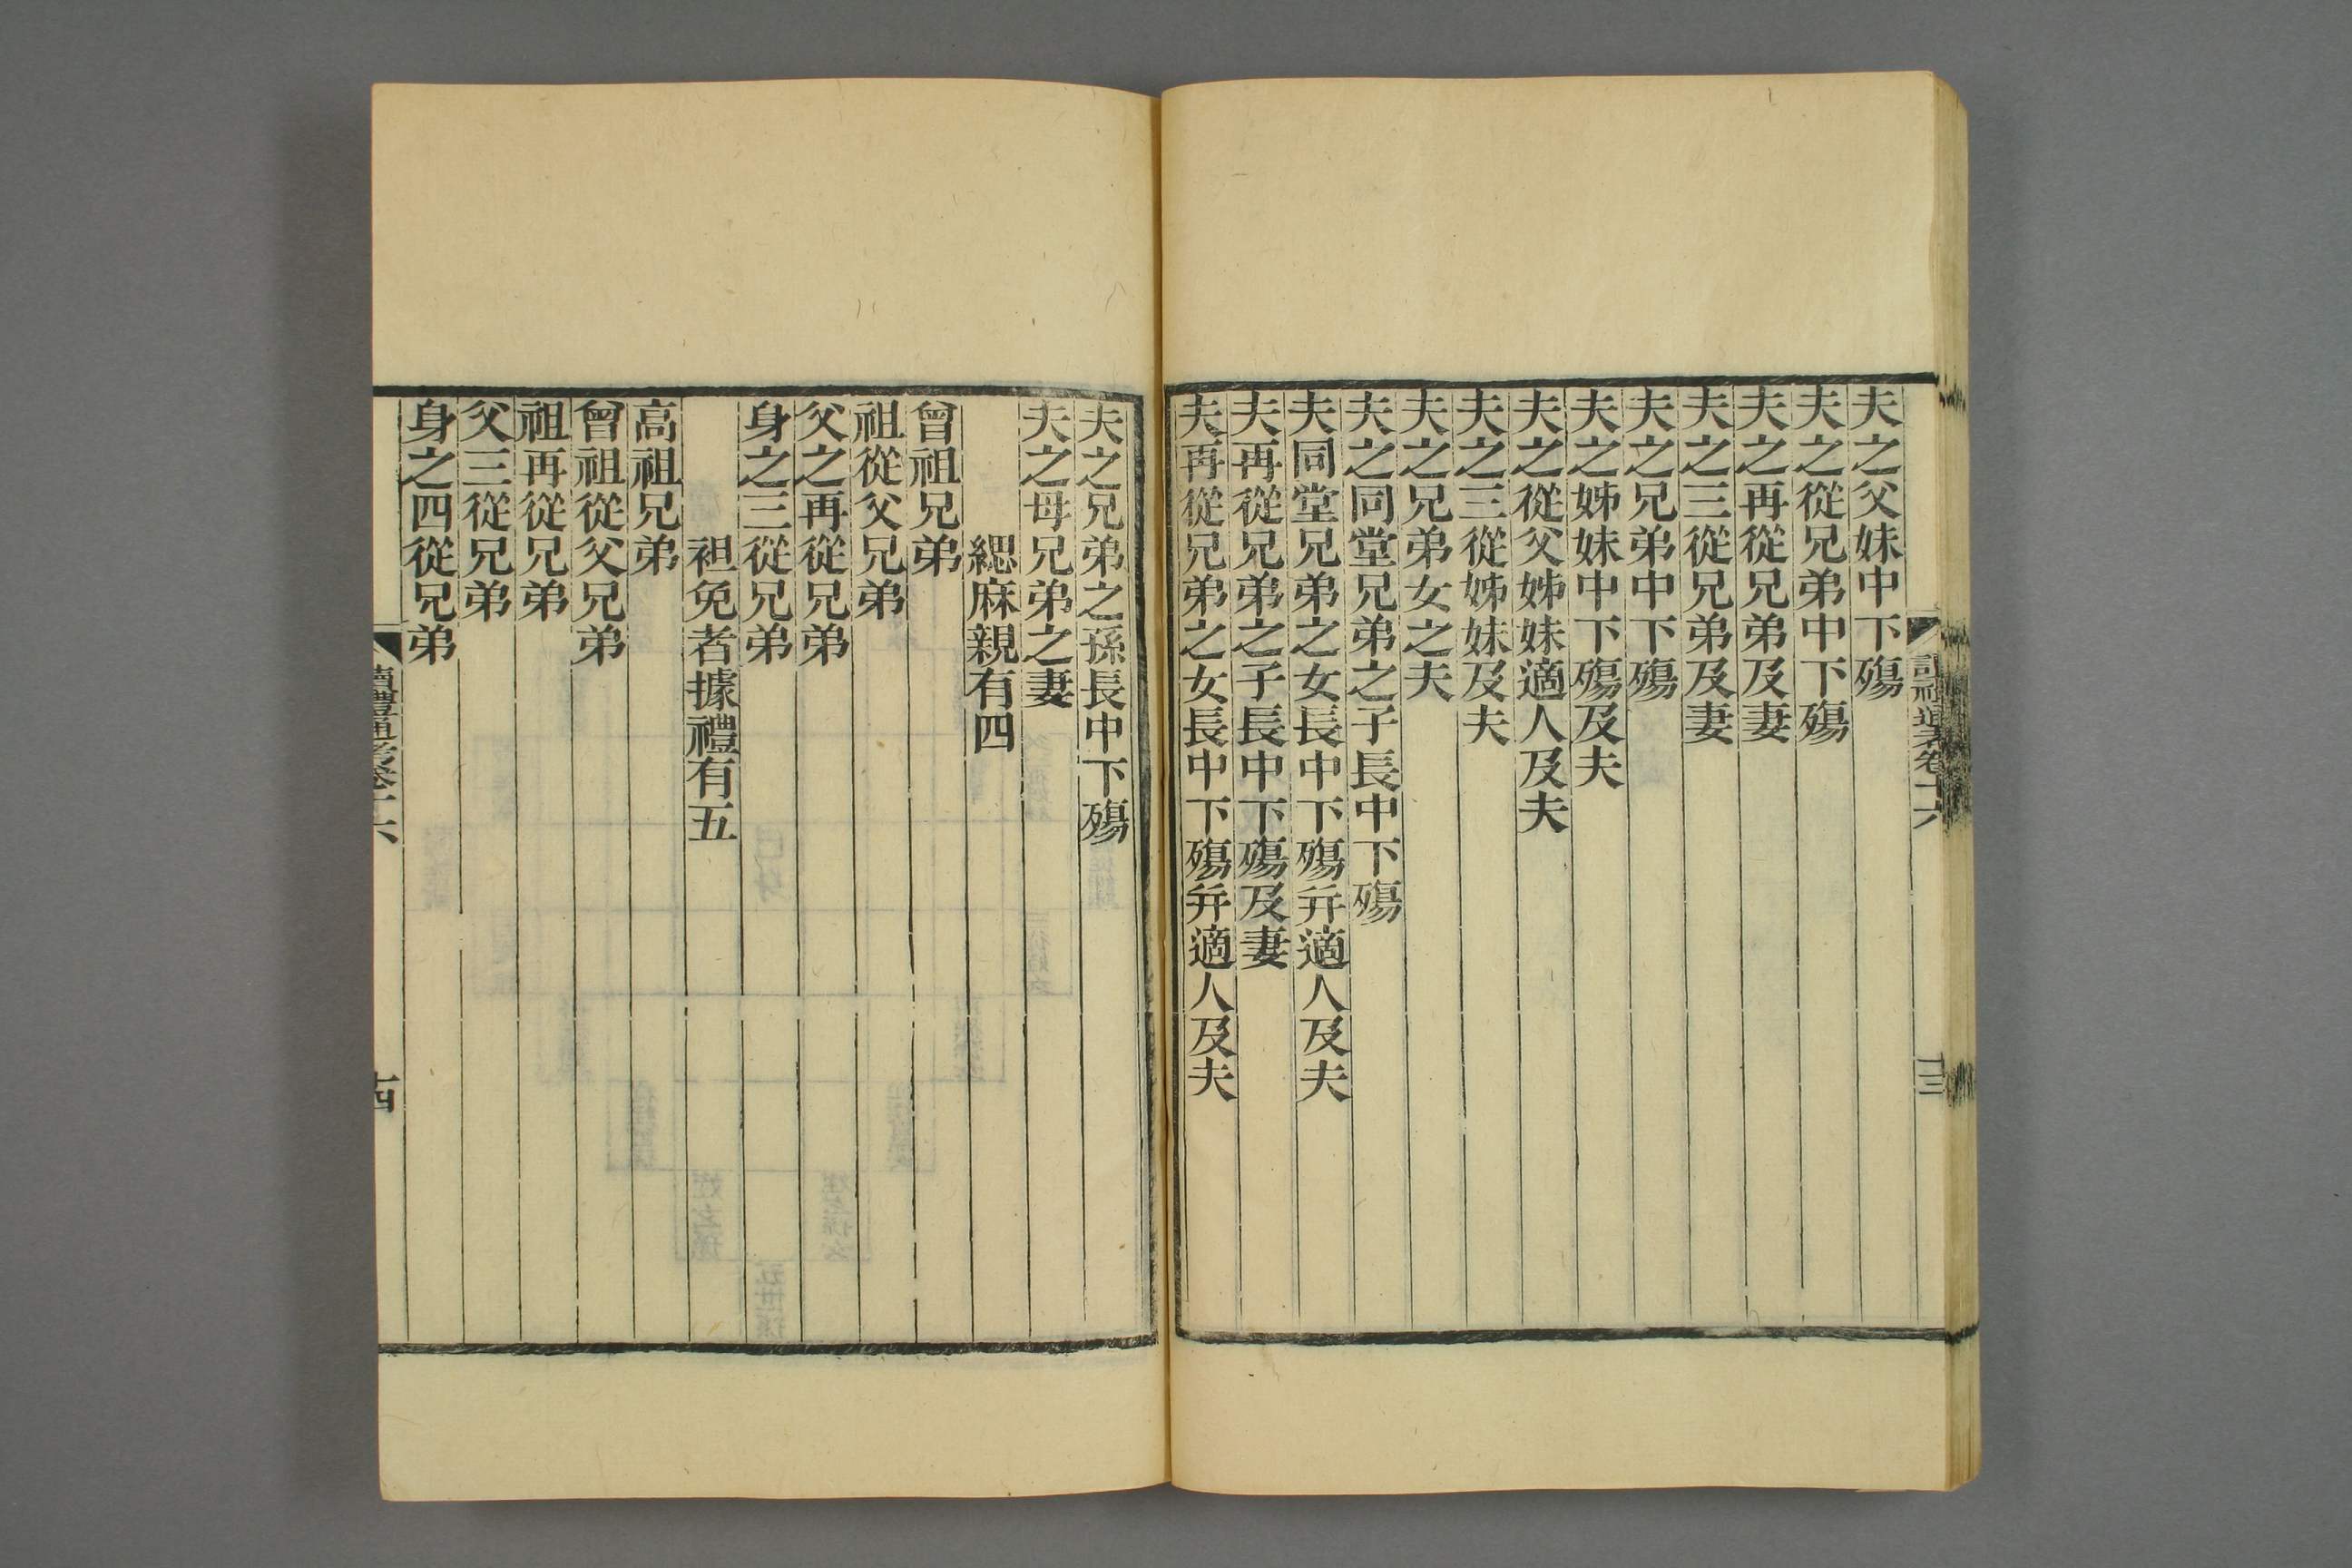 夫之父妹中下殤
夫之從兄弟中下殤
夫之再從兄弟及妻
夫之三從兄弟及妻
夫之兄弟中下殤
夫之姊妹中下殤及夫
夫之從父姊妹適人及夫
夫之三從姊妹及夫
夫之兄弟女之夫
夫之同堂兄弟之子長中下殤
夫同堂兄弟之女長中下殤并適人及夫
夫再從兄弟之子長中下殤及妻
夫再從兄弟之女長中下殤并適人及夫
夫之兄弟之孫長中下殤
夫之母兄弟之妻
緦麻親有四
曾祖兄弟
祖從父兄弟
父之再從兄弟
身之三從兄弟
袒免者據禮有五
高祖兄弟
曾祖從父兄弟
祖再從兄弟
父三從兄弟
身之四從兄弟
讀禮通考卷十六
十四